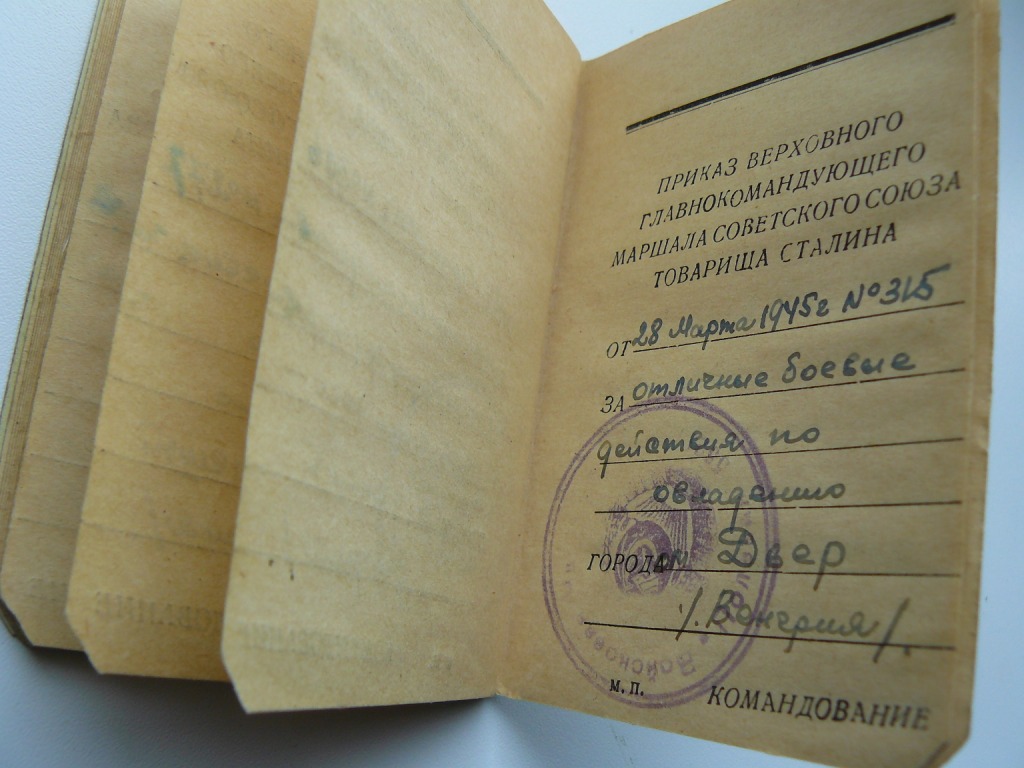 ПРИКАЗ ВЕРХОВНОГО
ГЛАВНОКОМАНДУЮЩЕГО
МАРШАЛА СОВЕТСКОГО СОЮЗА
ТОВАРИЩА СТАЛИНА
ОТ 28 Марта 1945г №315
ЗА отличные боевые
действия по
овладению
ГОРОДОМ Двер
/. Венгрия /.
М. П.
КОМАНДОВАНИЕ